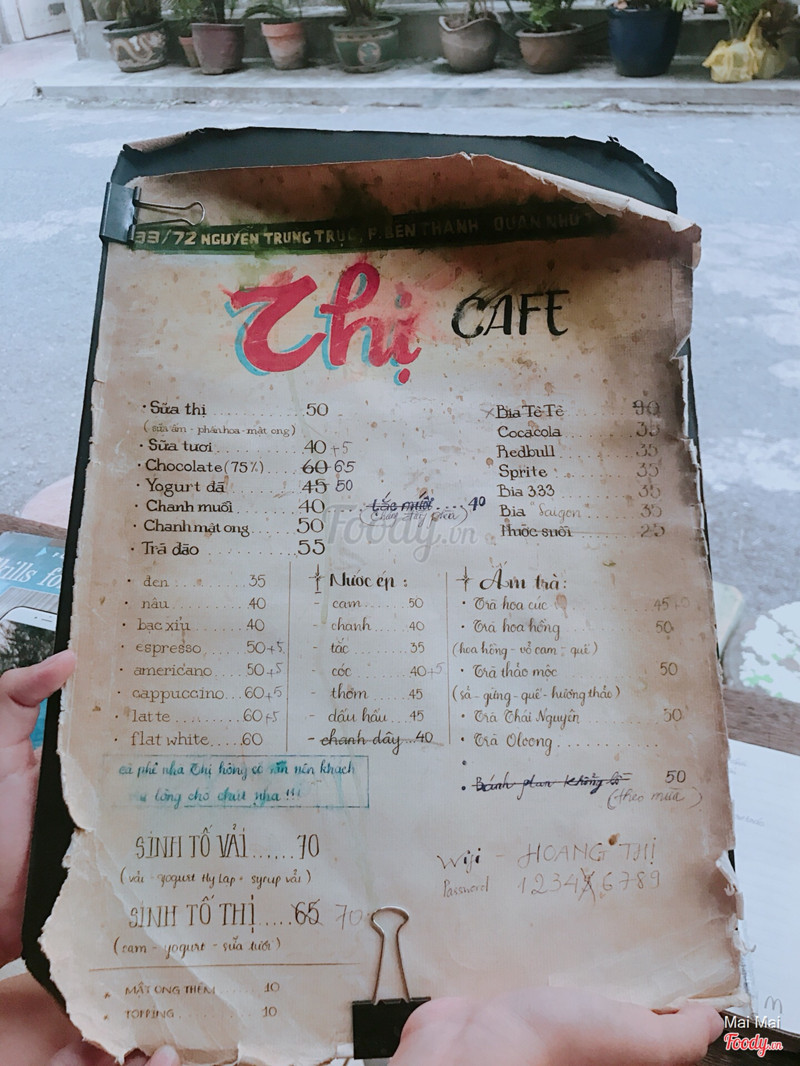 33/72 NGUYỄN TRUNG TRỰC, F. BẾN THÀNH QUÁN NHỎ
Thị CAFE
· Sữa thị .......... 50
(sữa ấm - phấn hoa - mật ong)
· Sữa tươi .......... 40 +5
· Chocolate (75%) ..... 60 65
· Yogurt đá ........ 45 50
· Chanh muối ....... 40
· Chanh mật ong ..... 50
· Trà đào .......... 55
Tắc muối .... 40
×Bia Tê Tê ....... 90
Cocacola ....... 35
Redbull ....... 35
Sprite ....... 35
Bia 333 ....... 35
Bia Saigon ....... 35
Nước suối ....... 25
· đen .... 35
· nâu .... 40
· bạc xỉu .... 40
· espresso .... 50+5
· americano .... 50+5
· cappuccino... 60+5
· latte .... 60+5
· flat white .... 60
Nước ép :
- cam .... 50
- chanh .... 40
- tắc .... 35
- cóc .... 40+5
- thơm .... 45
- dấu hấu .... 45
- chanh dây ... 40
Ấm trà :
· Trà hoa cúc ....... 45
· Trà hoa hồng ....... 50
(hoa hồng - vỏ cam - quế)
· Trà thảo mộc ....... 50
(sả - gừng - quế - hương thảo)
· Trà Thái Nguyên ....... 50
· Trà Oloong ..........
·
· Bánh plan khổng lồ 50
(theo mùa)
cà phê nhà Thị hông có sẵn nên khách
lòng chờ chút nha !!!
SINH TỐ VẢI ...... 70
(vải - yogurt Hy Lạp + syrup vải)
SINH TỐ THỊ ..... 65 70
(cam - yogurt - sữa tươi)
MẬT ONG THÊM 10
TOPPING 10
Wifi - HOANG THỊ
Password 123456789
Foody.vn
Mai Mai
Foody.vn